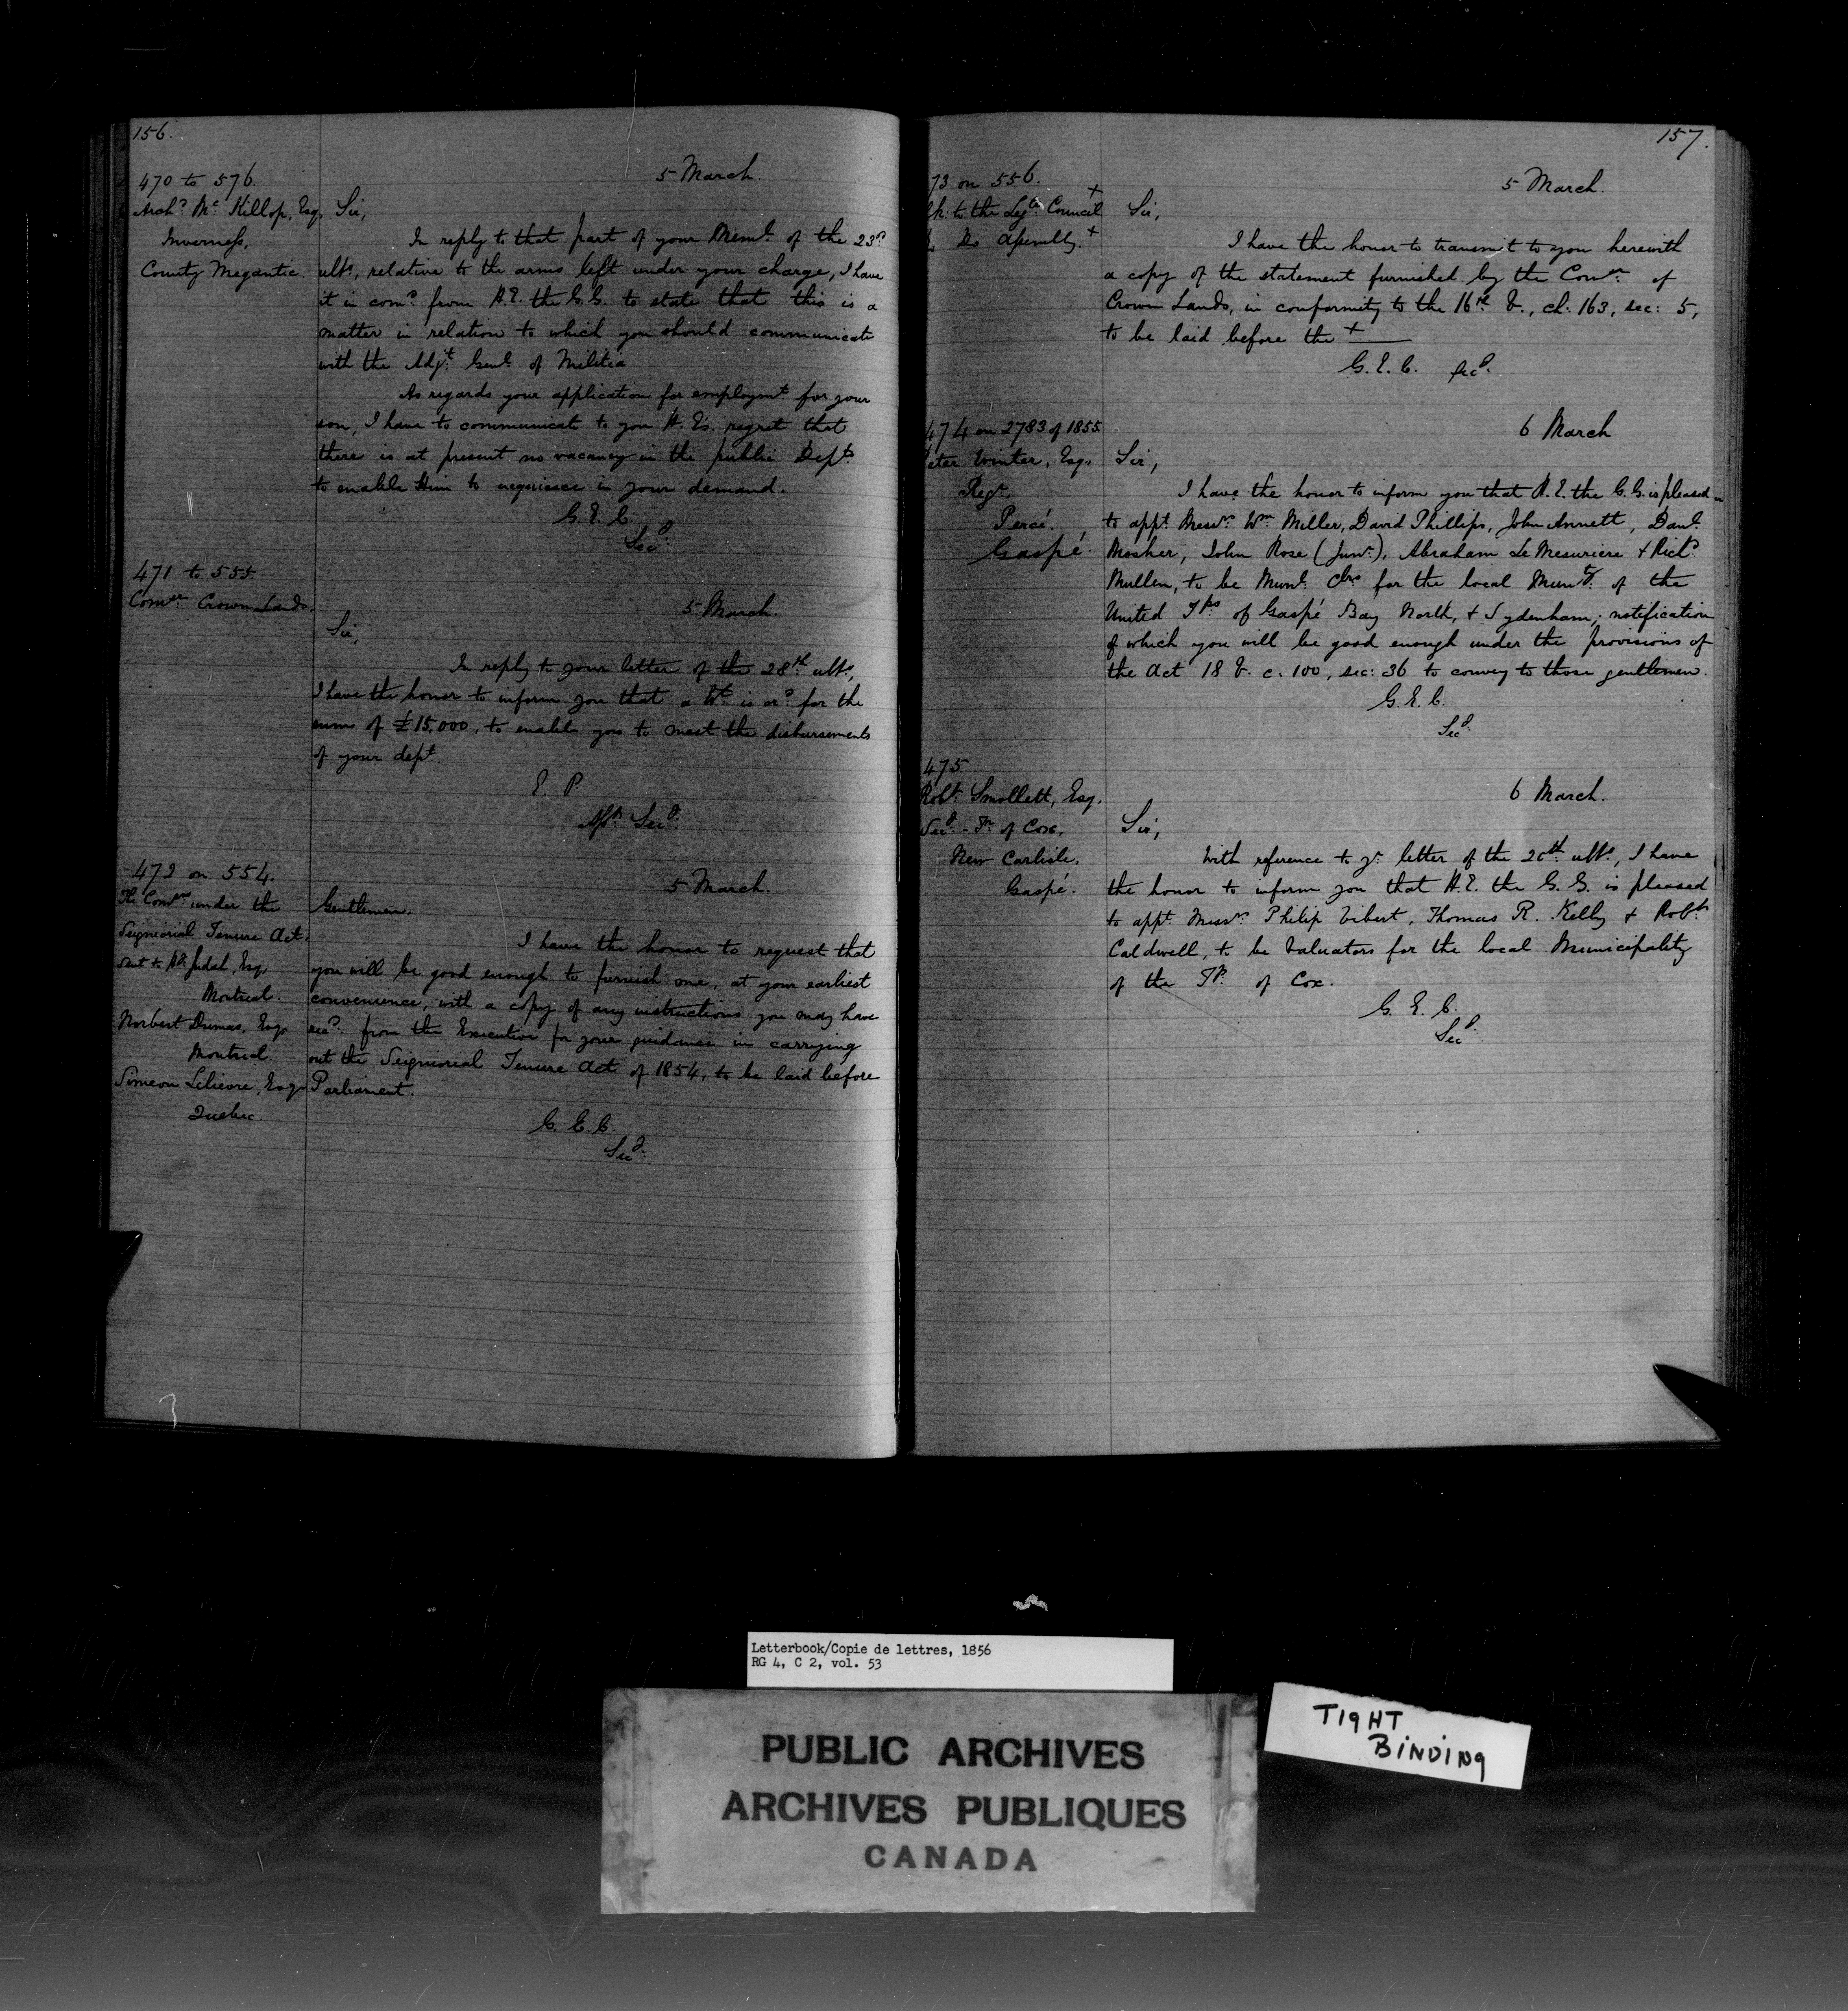 156.
470 to 576.
Arch^d. M^c Killop, Esq.
Inverness,
County Megantic.
5 March.
Sir,
In reply to that part of your Mem^l. of the 23^d.
ult^o., relative to the arms left under your charge, I have
it in com^d. from H.E. the G.G. to state that this is a
matter in relation to which you should communicate
with the Adj^t. Gen^l. of Militia.
As regards your application for employm^t. for your
son, I have to communicate to you H. E's. regret that
there is at present no vacancy in the public Dep^ts.
to enable Him to acquiesce in your demand.
G. E. C.
Sec^y.
471 to 555.
Com^er. Crown Lands.
5 March.
Sir,
In reply to your letter of the 28^th. ult^o.,
I have the honor to inform you that a W^t. is or^d. for the
sum of £15,000, to enable you to meet the disbursements
of your dep^t.
E. P.
Ass^t. Sec^y.
472 on 554.
The Com^ers. under the
Seigniorial Tenure Act.
Sent to H^y. Judah, Esq.
Montreal.
Norbert Dumas, Esq.
Montreal.
Simeon Lelievre, Esq.
Quebec.
5 March.
Gentlemen,
I have the honor to request that
you will be good enough to furnish me, at your earliest
convenience, with a copy of any instructions you may have
rec^d. from the Executive for your guidance in carrying
out the Seigniorial Tenure Act of 1854, to be laid before
Parliament.
G. E. C.
Sec^y.
157.
73 on 556.
Clk: to the Leg^ve. Council +
Do Assembly. +
5 March.
Sir,
I have the honor to transmit to you herewith
a copy of the statement furnished by the Com^er. of
Crown Lands, in conformity to the 16^th. V., ch. 163, sec: 5,
to be laid before the +
G. E. C. Sec^y.
474 on 2783 of 1855.
Peter Winter, Esq.
Reg^r.
Percé.
Gaspé.
6 March
Sir,
I have the honor to inform you that H.E. the G.G. is pleased
to app^t. Mess^rs. W^m. Miller, David Phillips, John Annett, Dan^l.
Mosher, John Rose (Jun^r.), Abraham Le Mesuriere & Rich^d.
Mullen, to be Mun^l. C^lrs for the local Mun^ty. of the
United T^ps. of Gaspé Bay North, & Sydenham; notification
of which you will be good enough under the provisions of
the Act 18 V. c. 100, sec: 36 to convey to those gentlemen.
G. E. C.
Sec^y.
475
Rob^t. Smollett, Esq.
Sec^y.-Tr. of Cox,
New Carlisle,
Gaspé.
6 March.
Sir,
With reference to y^r. letter of the 20^th. ult^o., I have
the honor to inform you that H.E. the G.G. is pleased
to app^t. Mess^rs. Philip Vibert, Thomas R. Kelly & Rob^t.
Caldwell, to be Valuators for the local Municipality
of the T^p. of Cox.
G. E. C.
Sec^y.
Letterbook/Copie de lettres, 1856
RG 4, C 2, vol. 53
PUBLIC ARCHIVES
ARCHIVES PUBLIQUES
CANADA
TIGHT
BINDING